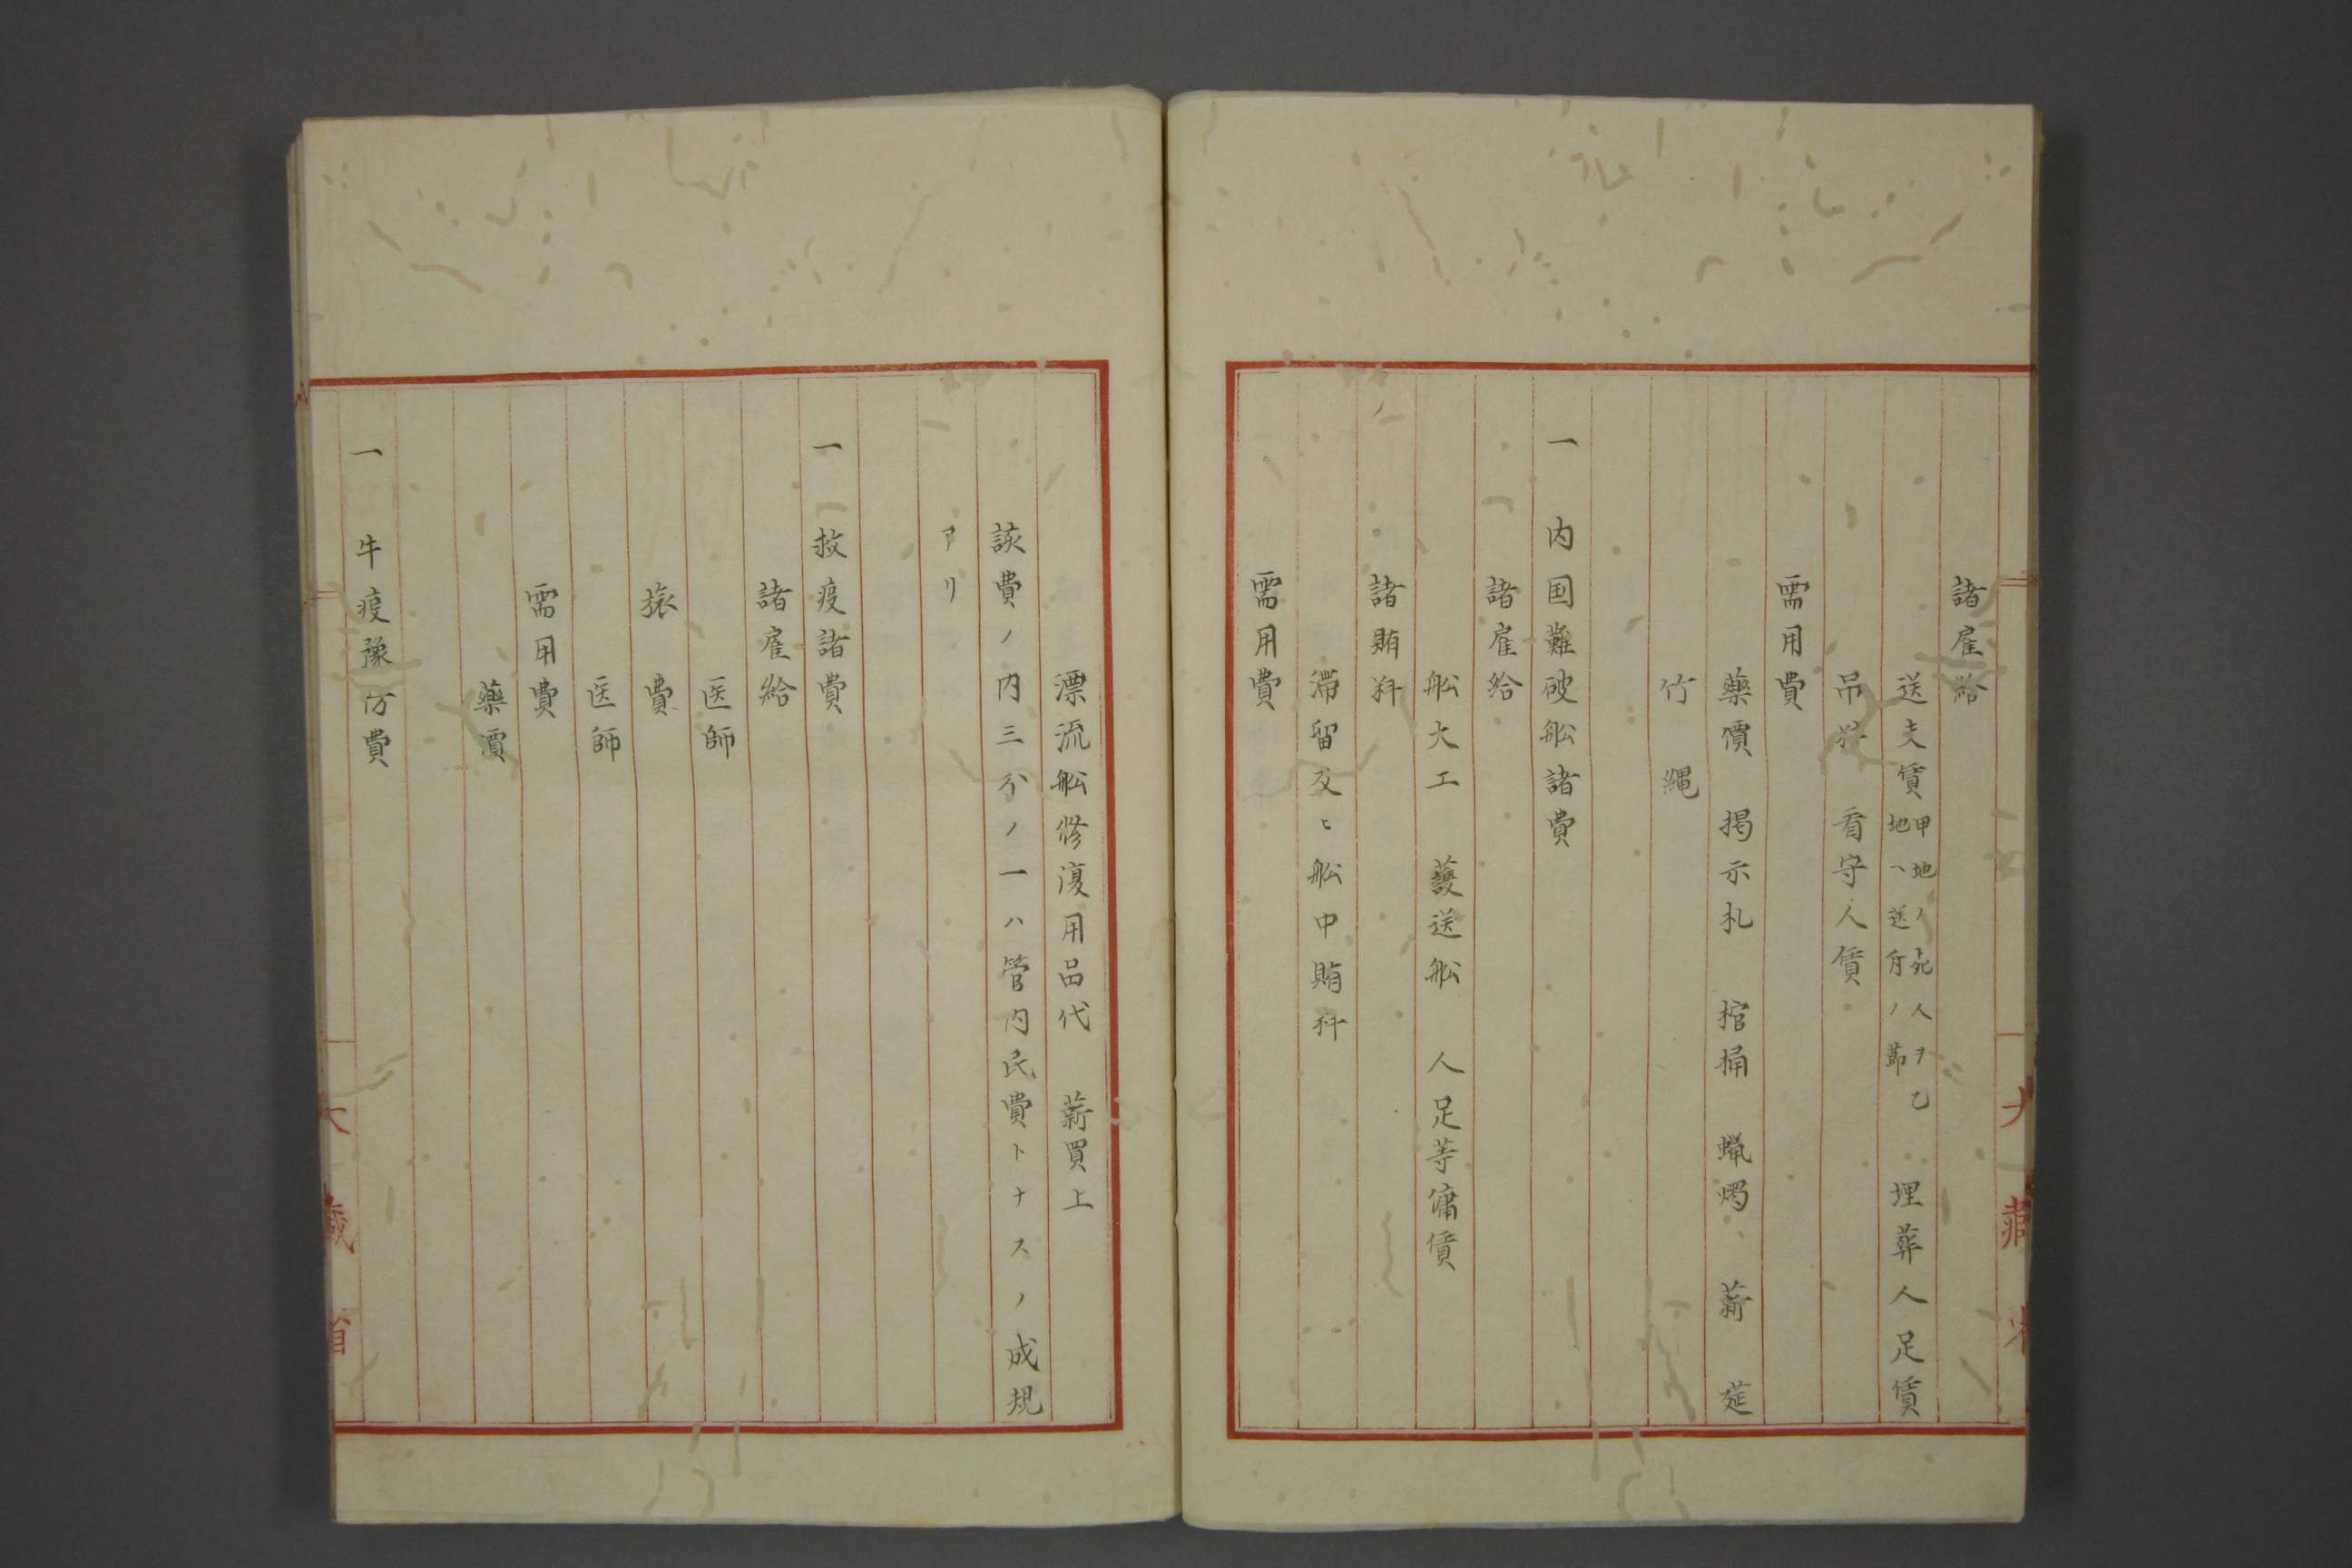 諸雇給
送夫賃甲地ノ死人ヲ乙地ヘ送付ノ節　埋葬人足賃
看守人賃
需用費
藥價　掲示札　棺桶　蝋燭　薪　莚
竹　縄
一　内国難破舩諸費
諸雇給
舩大工　護送舩　人足等傭賃
諸賄料
滞留及ヒ舩中賄料
需用費
漂流舩修復用品代　薪買上
該費ノ内三分ノ一ハ管内民費トナスノ成規
アリ
一　救疫諸費
諸雇給
医師
旅費
医師
需用費
藥價
一　牛疫豫防費
大藏省